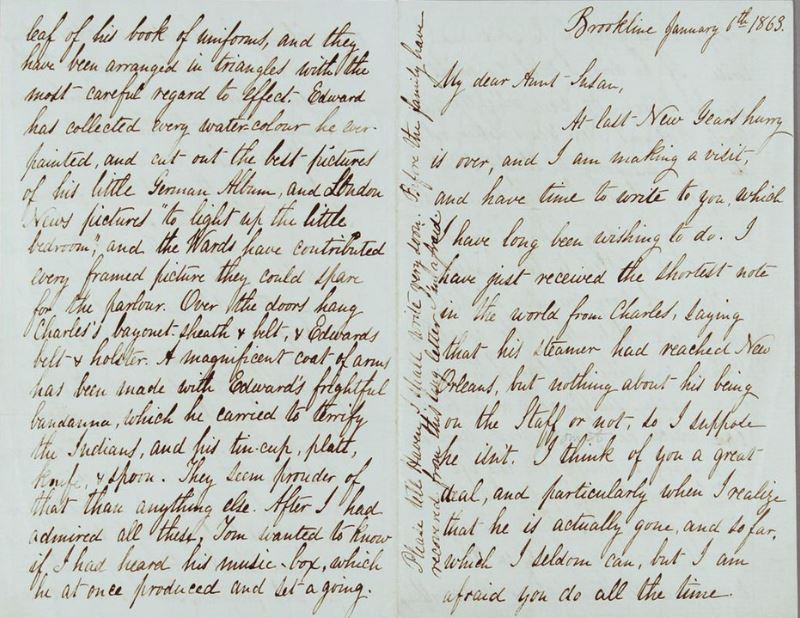 leaf of his book of uniforms, and they
have been arranged in triangles with the
most careful regard to effect. Edward
has collected every water-colour he ever
painted, and cut out the best pictures
of his little German Album, and London
News pictures "to light up the little
bedroom", and the Wards have contributed
every framed picture they could spare
for the parlour. Over the doors hang
Charles's bayonet-sheath & belt, & Edwards
belt & holster. A magnificent coat of arms
has been made with Edward's frightful
bandanna, which he carried to terrify
the Indians, and his tin-cup, plate,
knife, & spoon. They seem prouder of
that than anything else. After I had
admired all these, Tom wanted to know
if I had heard his music-box, which
he at once produced and set a going.
Brookline January 6th 1863.
My dear Aunt Susan,
At last New Years hurry
is over, and I am making a visit,
and have time to write to you, which
I have long been wishing to do. I
have just received the shortest note
in the world from Charles, saying
that his steamer had reached New
Orleans, but nothing about his being
on the Staff or not, so I suppose
he isn't. I think of you a great
deal, and particularly when I realize
that he is actually gone, and so far,
which I seldom can, but I am
afraid you do all the time.
Please tell I shall write very soon. Before the family have
recovered from this long letter I am afraid